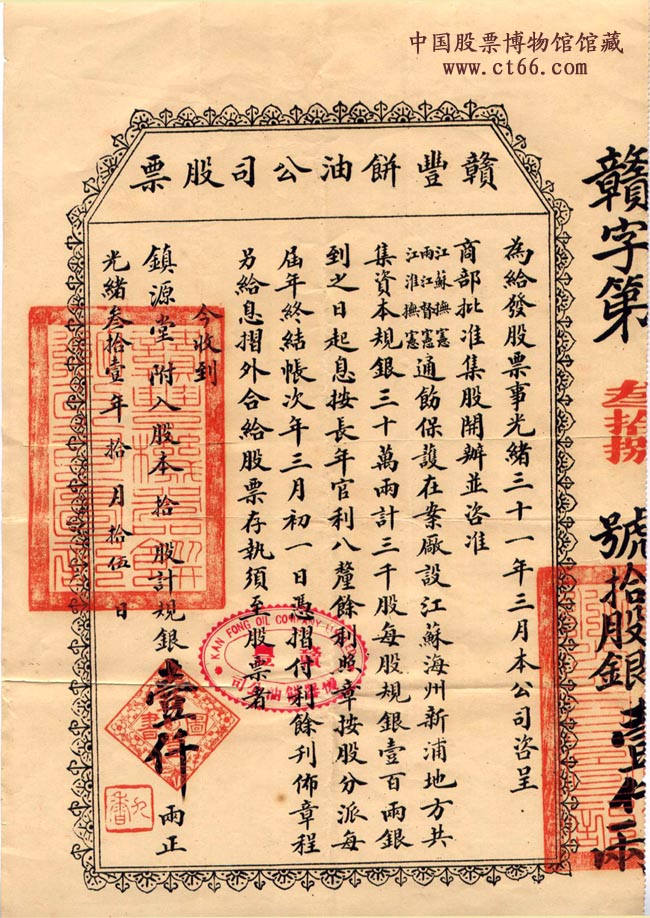 中国股票博物馆馆藏
www.ct66.com
贛豐餅油公司股票
為給發股票事光緒三十一年三月本公司咨呈
商部批准集股開辦並咨准
江蘇撫憲
兩江督憲
江淮撫憲
通飭保護在案廠設江蘇海州新浦地方共
集資本規銀三十萬兩計三千股每股規銀壹百兩銀
到之日起息按長年官利八釐餘利照章按股分派每
屆年終結帳次年三月初一日憑摺付利餘利佈章程
另給息摺外合給股票存執須至股票者
今收到
鎮源堂附入股本拾股計規銀壹仟兩正
光緒叁拾壹年拾月拾伍日
贛字第叁拾捌號拾股銀壹仟兩
KAN FONG OIL COMPANY LIMITED
贛豐